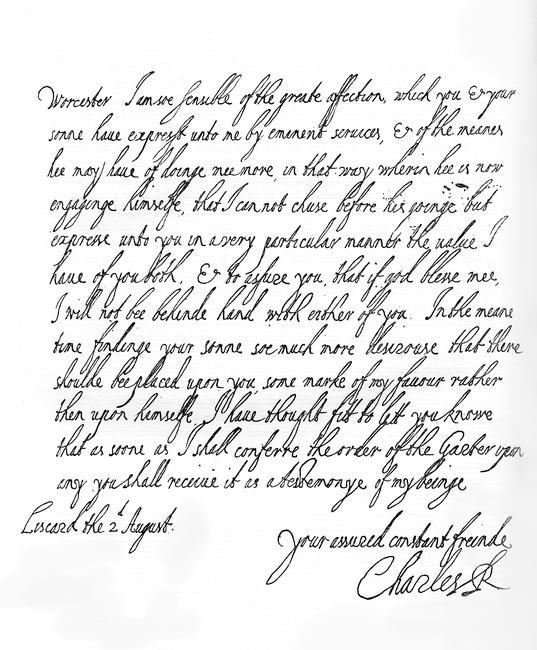 Worcester I am soe sensible of the greate affection, which you & your
sonne haue exprest unto me by eminent seruices, & of the meanes
hee may haue of doinge mee more, in that way wherin hee is now
engaginge himselfe, that I cannot chuse before his goinge but
expresse unto you in a very particular manner the value I
haue of you both, & to assure you, that if god blesse mee,
I will not bee behinde hand with either of you. In the meane
time findinge your sonne soe much more desirouse that there
shoulde bee placed upon you some marke of my fauour rather
then upon himselfe, I haue thought fitt to let you knowe
that as soone as I shall conferre the order of the Garter upon
any you shall receiue it as a testemonye of my beinge
Liscard the 2d August.
your assured constant freinde
Charles R